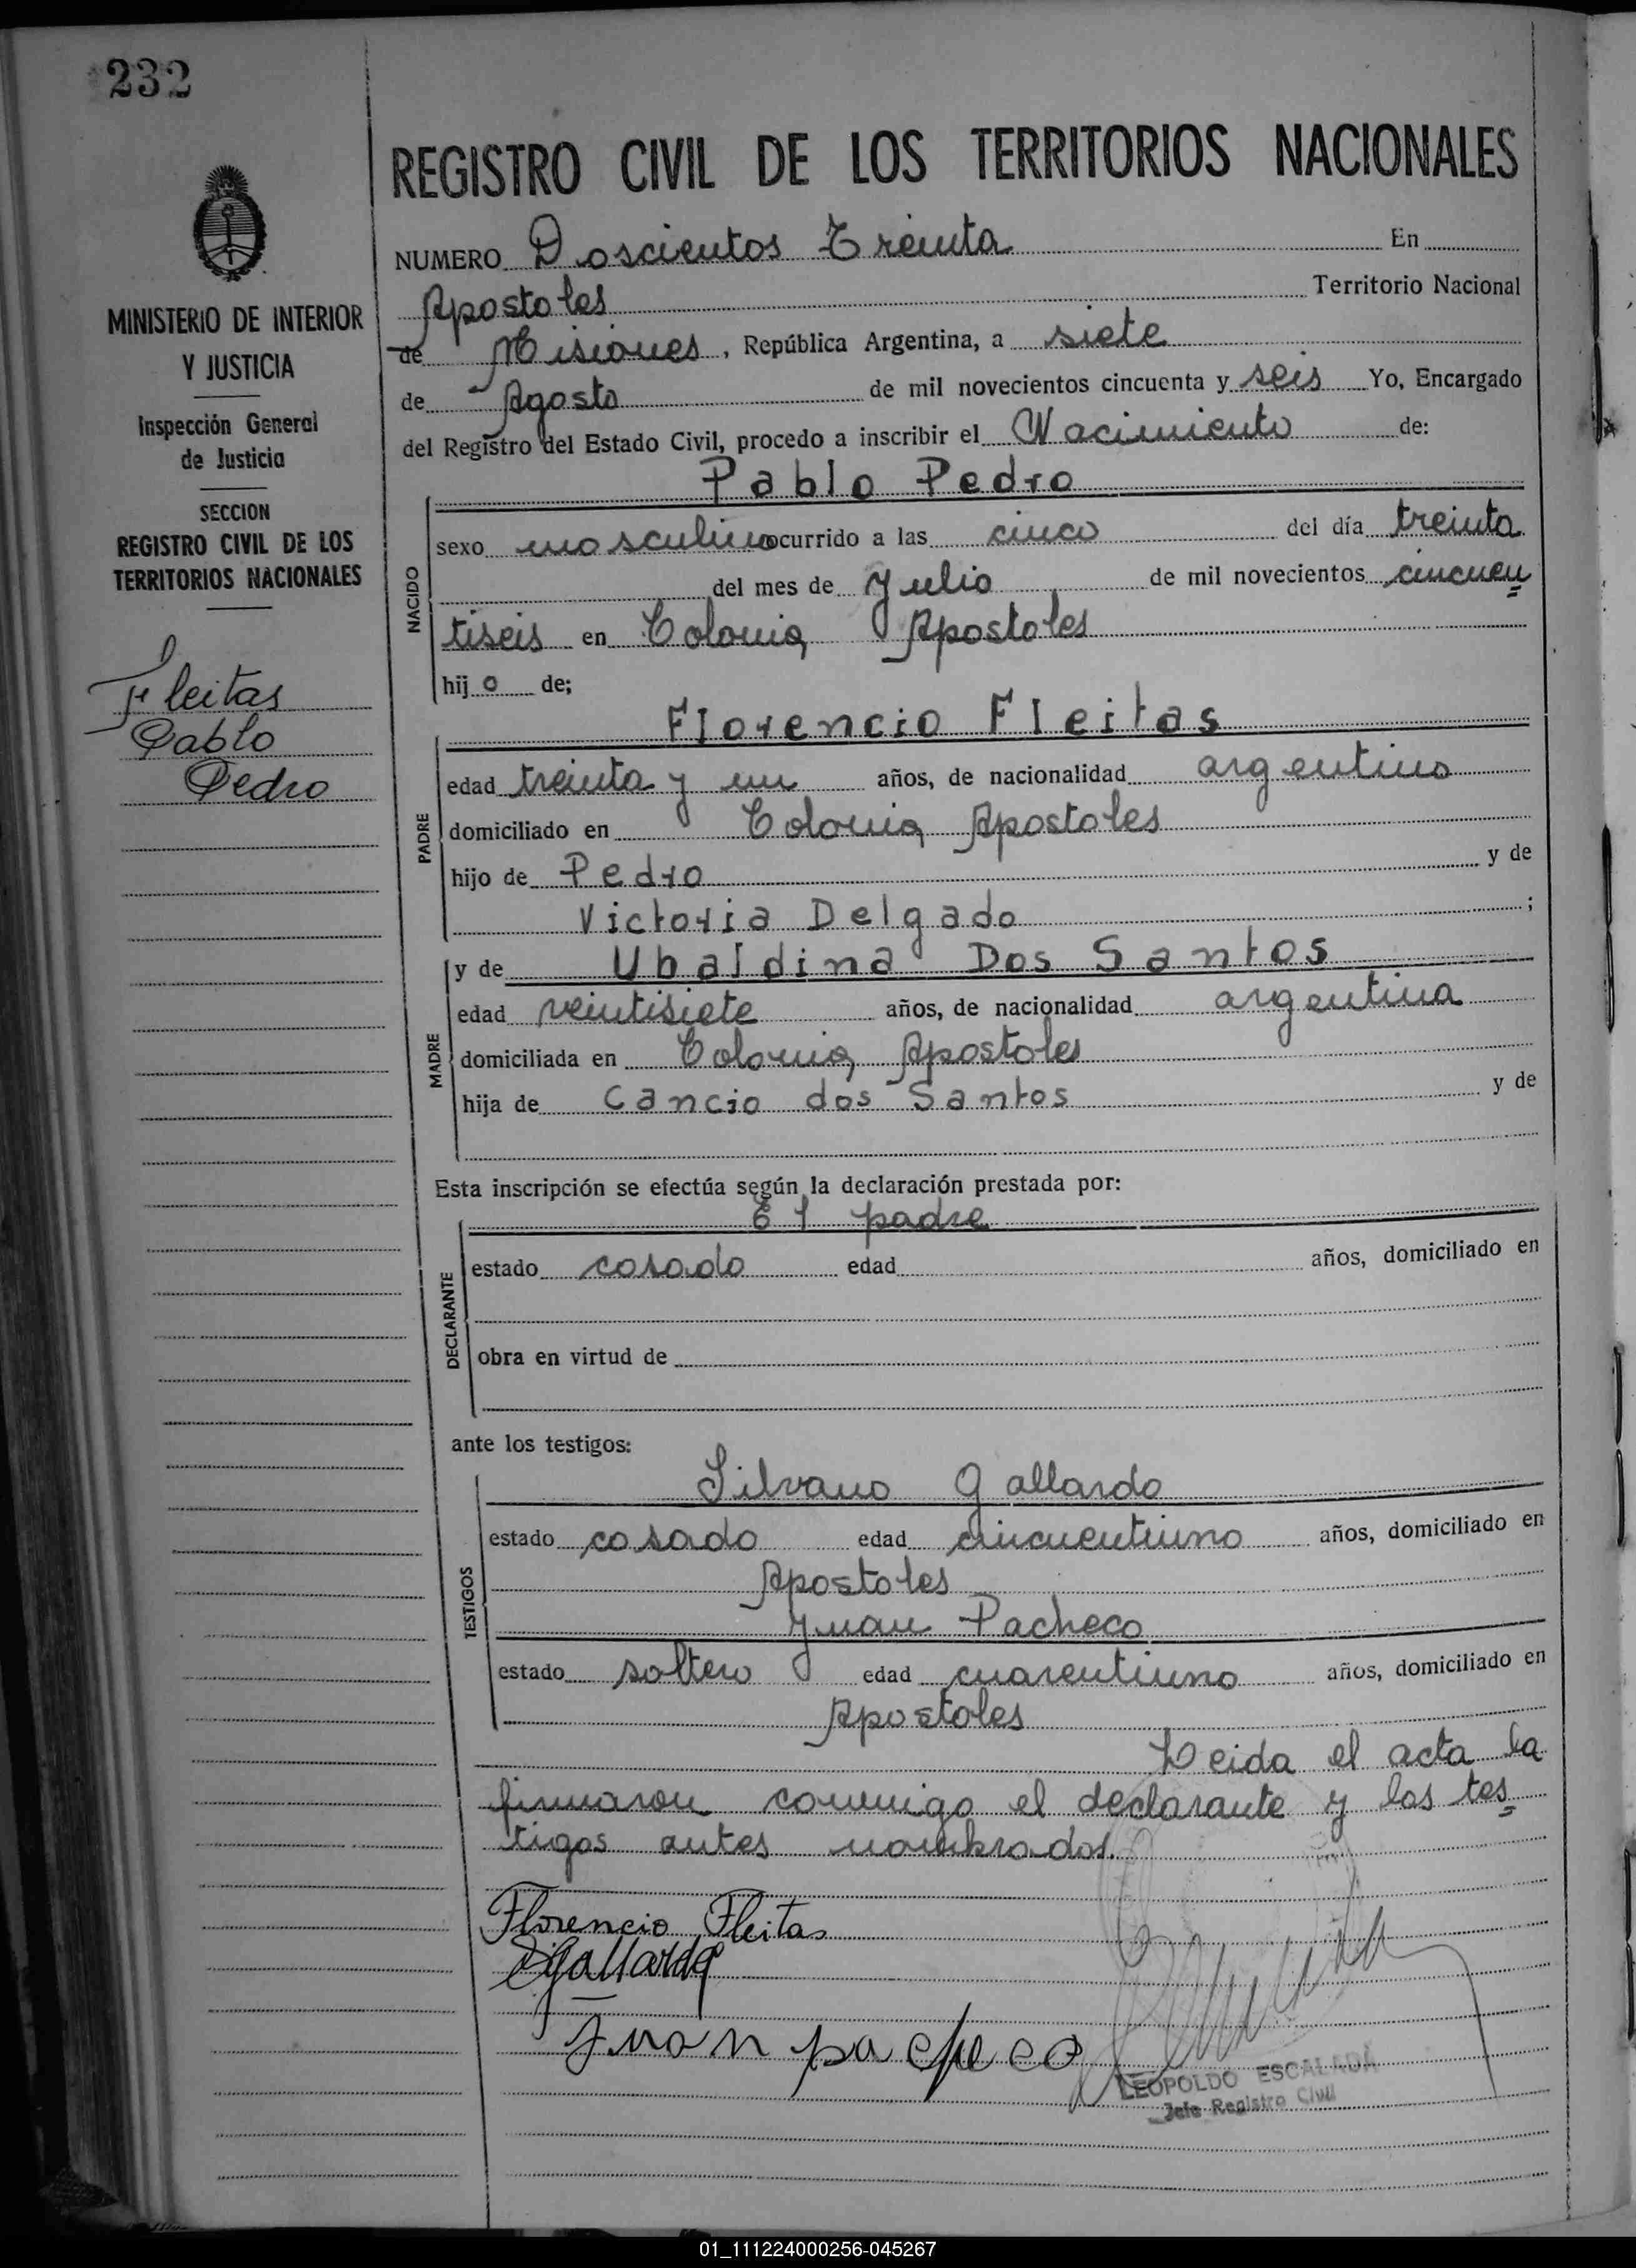 232
MINISTERIO DE INTERIOR
Y JUSTICIA
Inspección General
de Justicia
SECCION
REGISTRO CIVIL DE LOS
TERRITORIOS NACIONALES
Fleitas
Pablo
Pedro
REGISTRO CIVIL DE LOS TERRITORIOS NACIONALES
NUMERO Doscientos Treinta En
Apostoles Territorio Nacional
de Misiones, República Argentina, a siete
de Agosto de mil novecientos cincuenta y seis Yo, Encargado
del Registro del Estado Civil, procedo a inscribir el Nacimiento de:
Pablo Pedro
NACIDO
sexo masculino ocurrido a las cinco del día treinta
del mes de Julio de mil novecientos cincuen
tiseis en Colonia Apostoles
hijo de;
Florencio Fleitas
PADRE
edad treinta y un años, de nacionalidad argentino
domiciliado en Colonia Apostoles
hijo de Pedro y de
Victoria Delgado ;
MADRE
y de Ubaldina Dos Santos
edad veintisiete años, de nacionalidad argentina
domiciliada en Colonia Apostoles
hija de Cancio dos Santos y de
Esta inscripción se efectúa según la declaración prestada por:
El padre
DECLARANTE
estado casado edad años, domiciliado en
obra en virtud de
ante los testigos:
Silvano Gallardo
TESTIGOS
estado casado edad cincuentiuno años, domiciliado en
Apostoles
Juan Pacheco
estado soltero edad cuarentiuno años, domiciliado en
Apostoles
Leida el acta la
firmaron conmigo el declarante y los tes
tigos antes nombrados.
Florencio Fleitas
SGallardo
Juan pacheco
LEOPOLDO ESCALADA
Jefe Registro Civil
01_111224000256-045267